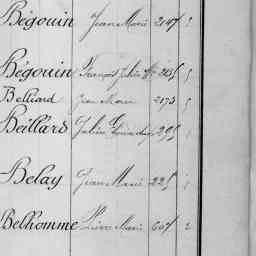 Bégouin Jean Marie 2147
Bégouin François Julien
Belliard Jean Marie 2173
Beillard Julien 295
Belay Jean Marie 225
Belhomme Pierre Marie 607